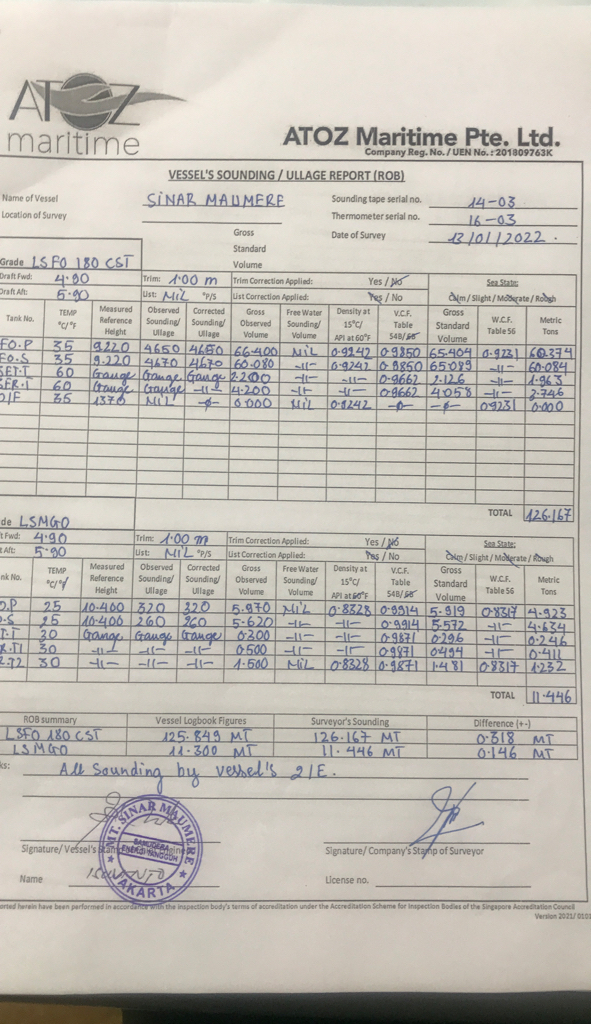 ATOZ
maritime
ATOZ Maritime Pte. Ltd.
Company Reg. No. / UEN No. : 201809763K
VESSEL'S SOUNDING / ULLAGE REPORT (ROB)
Name of Vessel SINAR MAUMERE Sounding tape serial no. 14-03
Location of Survey Thermometer serial no. 16-03
Gross Standard Volume Date of Survey 13/01/2022.
Grade LSFO 180 CST
Draft Fwd: 4.90 Trim: 1.00 m Trim Correction Applied: Yes / No Sea State:
Draft Aft: 5.90 List: NIL °P/S List Correction Applied: Yes / No Calm / Slight / Moderate / Rough
Tank No. TEMP °C/°F Measured Reference Height Observed Sounding/ Ullage Corrected Sounding/ Ullage Gross Observed Volume Free Water Sounding/ Volume Density at 15°C/ API at 60°F V.C.F. Table 54B/6B Gross Standard Volume W.C.F. Table 56 Metric Tons
FO.P 35 9.220 4650 4650 66.400 NIL 0.9242 0.9850 65.404 0.9231 60.374
FO.S 35 9.220 4670 4670 66.080 -11- 0.9242 0.9850 65.089 -11- 60.084
SET.T 60 Gauge Gauge Gauge 2.200 -11- -11- 0.9662 2.126 -11- 1.963
SER.T 60 Gauge Gauge -11- 4.200 -11- -11- 0.9662 4.058 -11- 3.746
O/F 35 1370 NIL -0- 0.000 NIL 0.9242 -0- -0- 0.9231 0.000
TOTAL 126.167
de LSMGO
t Fwd: 4.90 Trim: 1.00 m Trim Correction Applied: Yes / No Sea State:
t Aft: 5.90 List: NIL °P/S List Correction Applied: Yes / No Calm / Slight / Moderate / Rough
nk No. TEMP °C/°F Measured Reference Height Observed Sounding/ Ullage Corrected Sounding/ Ullage Gross Observed Volume Free Water Sounding/ Volume Density at 15°C/ API at 60°F V.C.F. Table 54B/6B Gross Standard Volume W.C.F. Table 56 Metric Tons
O.P 25 10.400 320 320 5.970 NIL 0.8328 0.9914 5.919 0.8317 4.923
O.S 25 10.400 260 260 5.620 -11- -11- 0.9914 5.572 -11- 4.634
T.T 30 Gauge Gauge Gauge 0.300 -11- -11- 0.9871 0.296 -11- 0.246
R.T1 30 -11- -11- -11- 0.500 -11- 0.9871 0.494 -11- 0.411
R.T2 30 -11- -11- -11- 1.500 NIL 0.8328 0.9871 1.481 0.8317 1.232
TOTAL 11.446
ROB summary Vessel Logbook Figures Surveyor's Sounding Difference (+-)
LSFO 180 CST 125.849 MT 126.167 MT 0.318 MT
LSMGO 11.300 MT 11.446 MT 0.146 MT
ks: All Sounding by vessel's 2/E.
MT. SINAR MAUMERE
SAMUDERA ENERGI TANGGUH
JAKARTA
Signature/ Vessel's Signature/ Company's Stamp of Surveyor
Name License no.
orted herein have been performed in accordance with the inspection body's terms of accreditation under the Accreditation Scheme for Inspection Bodies of the Singapore Accreditation Council
Version 2021/ 0101